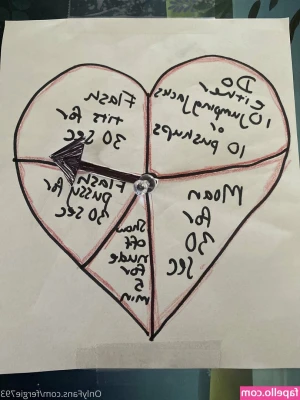 Flash
tits for
30 sec
Do
Either
10 Jumping Jacks
or
10 pushups
Flash
pussy for
30 sec
Show
off
nude
for
5
min
Moan
for
30
sec
OnlyFans.com/fergie793
fapello.com